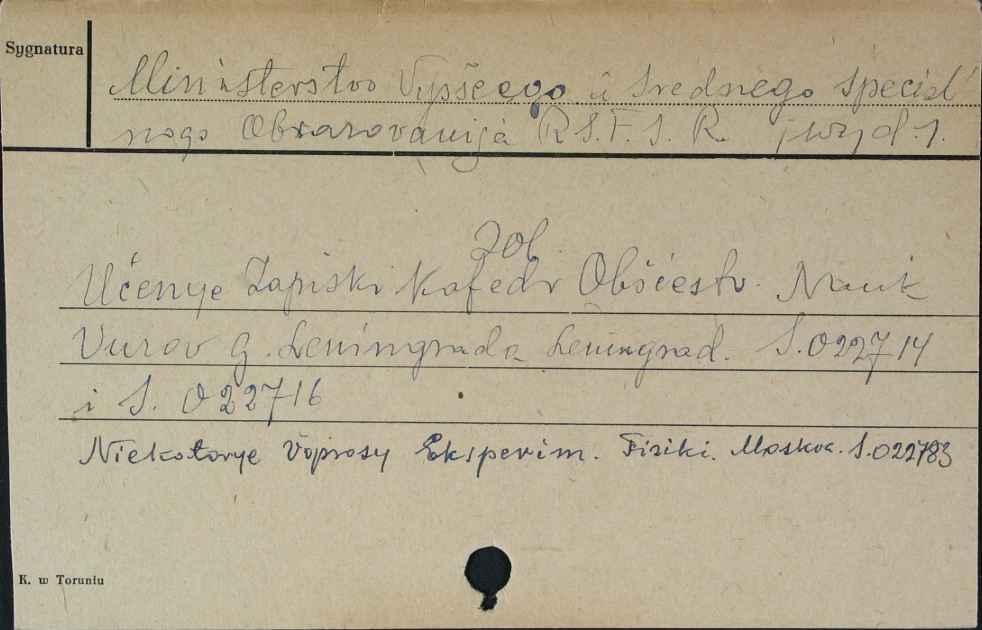 Sygnatura
Ministerstvo Vysšeego i Srednego special'
nogo Obrazovanija R.S.F.S.R. /wyd./.
zob
Učenye Zapiski Kafedr Obščestv. Nauk
Vuzov g. Leningrada Leningrad. S.022714
i S. 022716
Niekotorye Voprosy Eksperim. Fiziki. Moskva. S.022783
K. w Toruniu